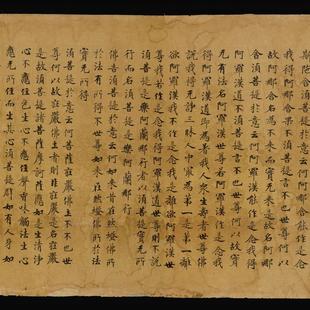 斯陀含須菩提於意云何阿那含能作是念
我得阿那含果不須菩提言不也世尊何以
故阿那含名為不来而實无来是故名阿那
含須菩提於意云何阿羅漢能作是念我得
阿羅漢道不須菩提言不也世尊何以故實
无有法名阿羅漢世尊若阿羅漢作是念我
得阿羅漢道即為著我人衆生壽者世尊佛
說我得无諍三昧人中冣為第一是第一離
欲阿羅漢我不作是念我是離欲阿羅漢世
尊我若作是念我得阿羅漢道世尊則不說
須菩提是樂阿蘭那行者以須菩提實无所
行而名須菩提是樂阿蘭那行
佛告須菩提於意云何如来昔在然燈佛所
於法有所得不世尊如来在然燈佛所於法
實无所得
須菩提於意云何菩薩莊嚴佛土不不也世
尊何以故莊嚴佛土者則非莊嚴是名莊嚴
是故須菩提諸菩薩摩訶薩應如是生清淨
心不應住色生心不應住聲香味觸法生心
應无所住而生其心須菩提譬如有人身如